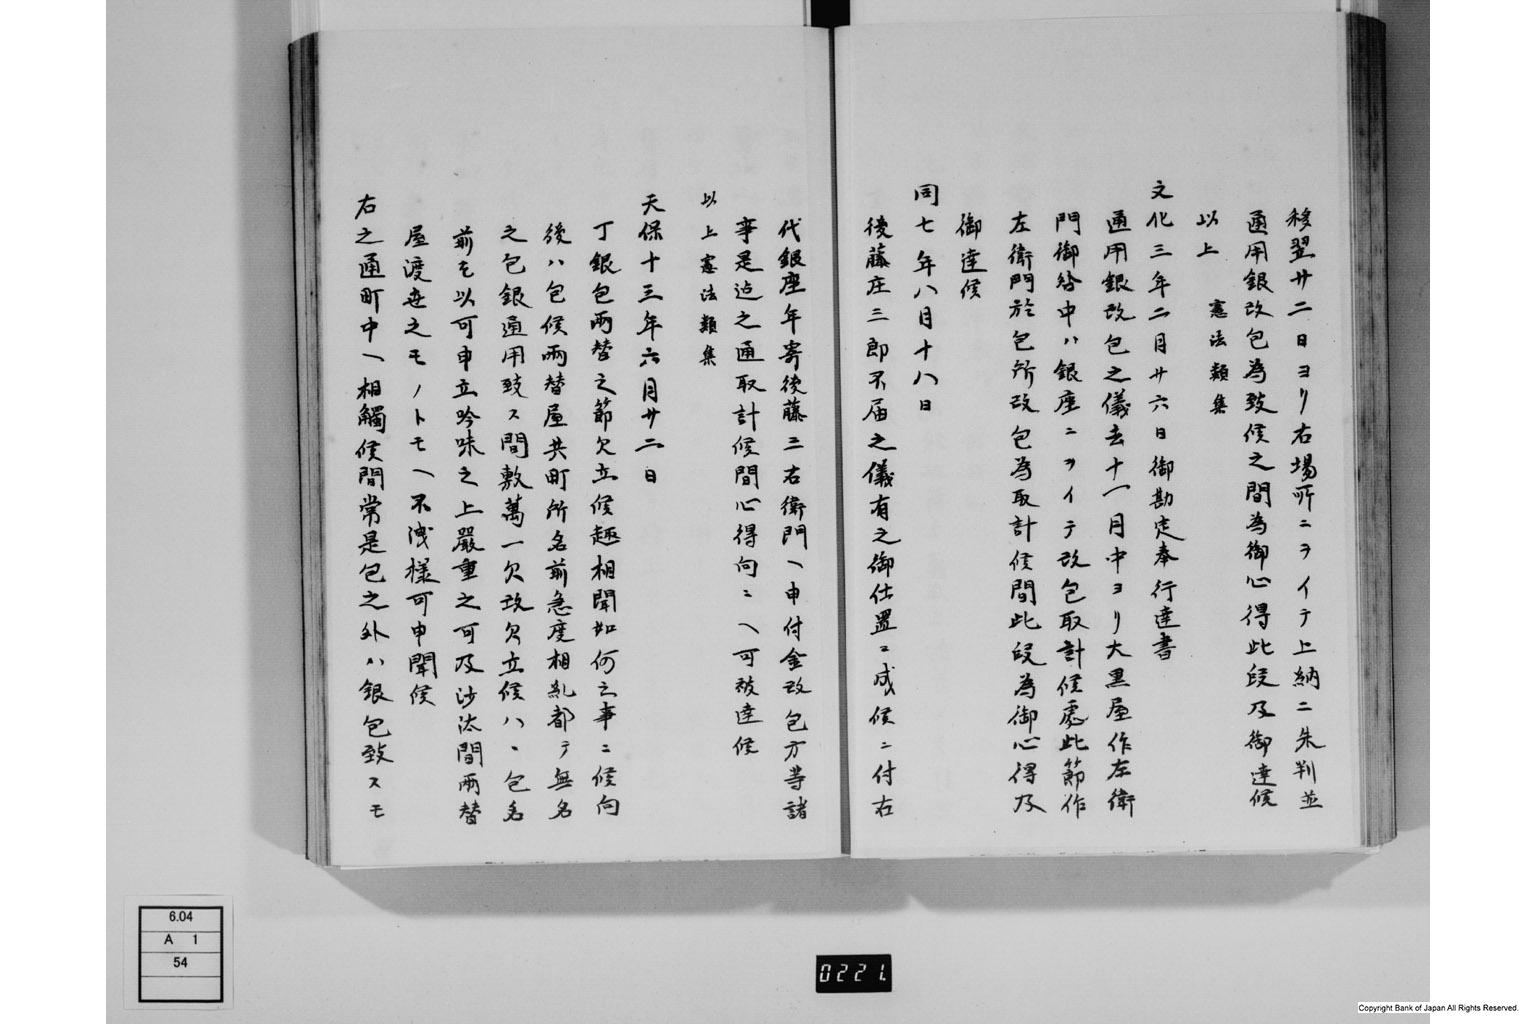 移翌廿二日ヨリ右場所ニヲイテ上納ニ朱判並
通用銀改包為致候之間為御心得此段及御達候
以上　憲法類集
文化三年二月廿六日御勘定奉行達書
通用銀改包之儀去十一月中ヨリ大黒屋作左衛
門御咎中ハ銀座ニヲイテ改包取計候處此節作
左衛門於包所改包為取計候間此段為御心得及
御達候
同七年八月十八日
後藤庄三郎不届之儀有之御仕置ニ成候ニ付右
代銀座年寄後藤三右衛門ヘ申付金改包方等諸
事是迄之通取計候間心得向ニヘ可被達候
以上憲法類集
天保十三年六月廿二日
丁銀包両替之節欠立候趣相聞如何之事ニ候向
後ハ包候両替屋共町所名前急度相糺都テ無名
之包銀通用致ス間敷萬一欠改欠立候ハヽ包名
前ヲ以可申立吟味之上嚴重之可及沙汰間両替
屋渡世之モノトモヘ不洩様可申聞候
右之通町中ヘ相觸候間常是包之外ハ銀包致スモ
6.04
A 1
54
0221.
Copyright Bank of Japan All Rights Reserved.